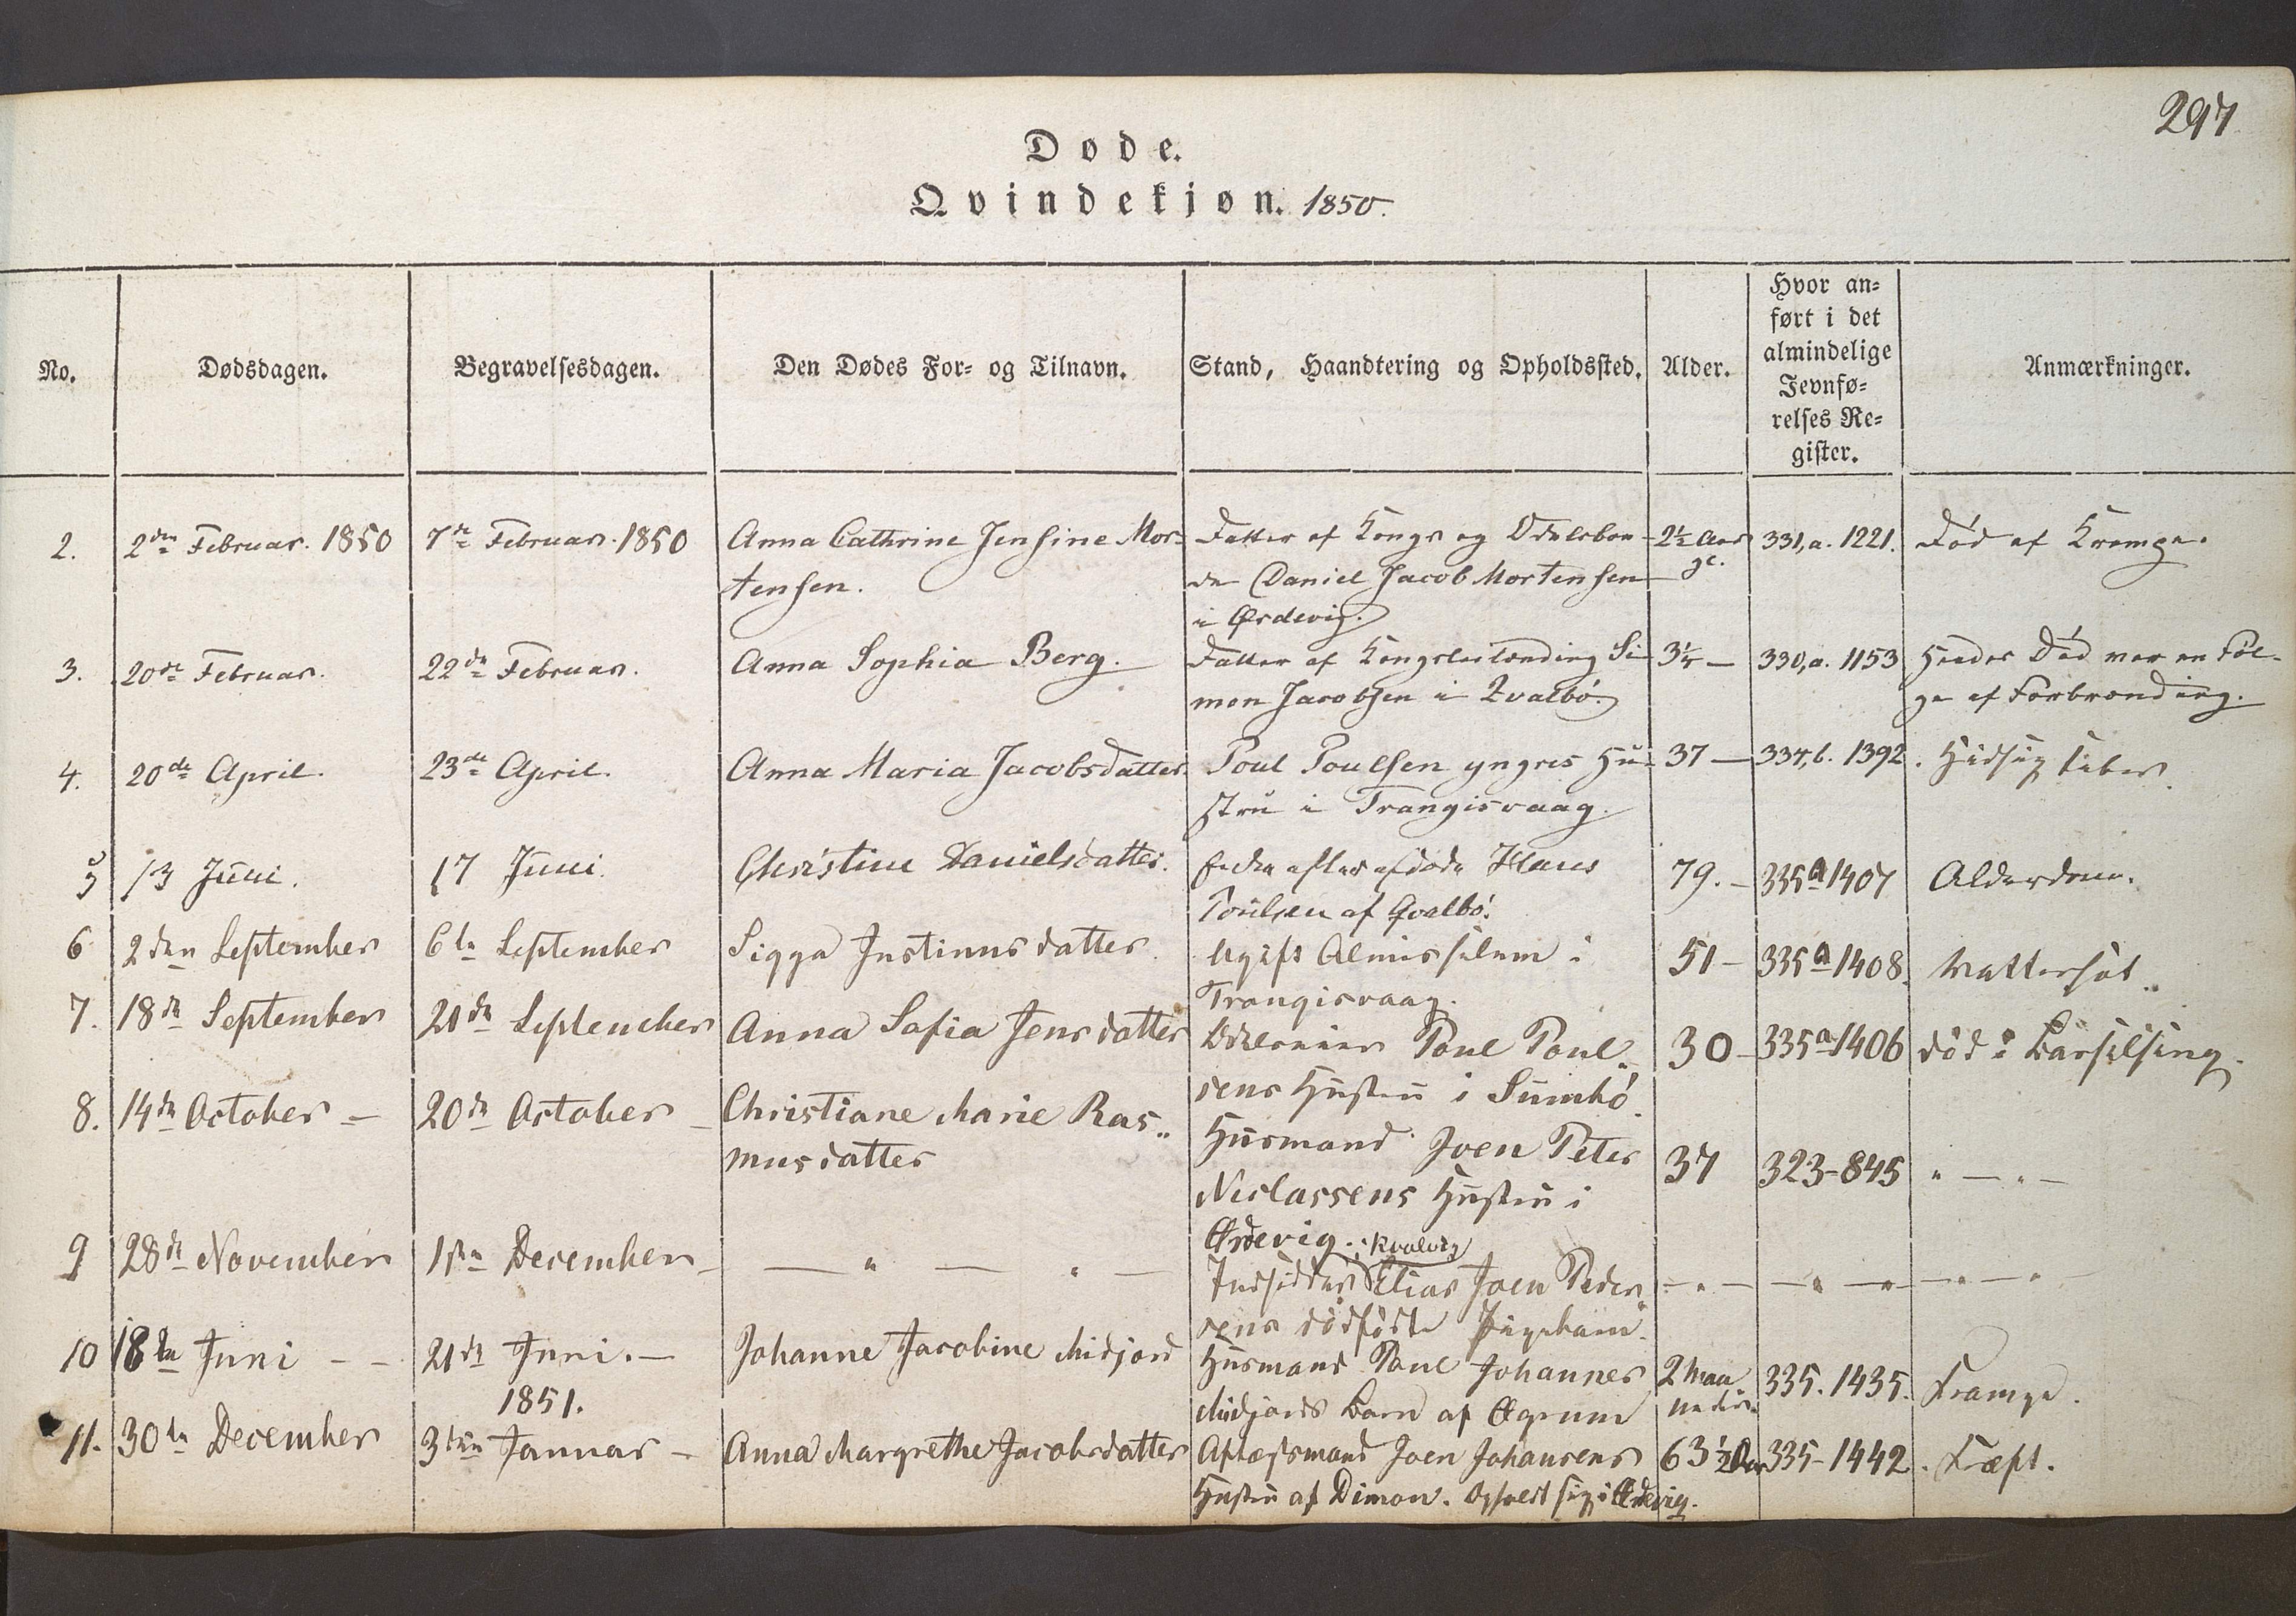 297
Døde.
Qvindekjøn. 1850.
No.
Dødsdagen.
Begravelsesdagen.
Den Dødes For- og Tilnavn.
Stand, Haandtering og Opholdssted.
Alder.
Hvor an-
ført i det
almindelige
Jevnfø-
relses Re-
gister.
Anmærkninger.
2. 2den Februar. 1850 7de Februar. 1850 Anna Cathrine Jensine Mor- Datter af Kongs og Odelsbon- 2½ Aar 331,a. 1221. Død af Krampe.
tensen. de Daniel Jacob Mortensen gl.
i Ørdevig.
3. 20de Februar. 22de Februar. Anna Sophia Berg. Datter af Si- 3¼ — 330,a. 1153 Hendes Død var en Føl-
mon Jacobsen i Qvalbø. ge af Forbrænding.
4. 20de April. 23de April. Anna Maria Jacobsdatter. Poul Poulsen yngres Hu- 37 — 334,b. 1392. Hidsig Feber.
stru i Trangisvaag.
5 13 Juni. 17 Juni. Christine Danielsdatter. Enke efter afdøde Hans 79. — 335a 1407 Alderdom.
Poulsen af Qvalbø.
6 2den September 6te September Sigga Justinusdatter. Ugift Almisselem i 51 — 335a 1408.
Trangisvaag.
7. 18de September 21de September Anna Sofia Jensdatter Poul Poul„ 30 — 335a 1406 død i Barselseng.
sens Hustru i Sumbø.
8. 14de October — 20de October — Christiane Marie Ras„ Husmand Joen Peter 37 323-845 „ — „ —
musdatter Niclassens Hustru i
Ørdevig.
i Kvalvig
9 28de November 1ste December — — „ — „ — Indsidder Elias Joen Peder„ — „ — — „ — „ — — „ — „ —
sens dødfødte Pigebarn.
10 18de Juni — — 21de Juni. — Johanne Jacobine Midjord Husmand Poul Johannes 2 Maa„ 335. 1435. Krampe.
1851. Midjords Barn af Øgrum neder.
11. 30te December 3die Januar — Anna Margrethe Jacobsdatter Aftægtsmand Joen Johansens 63½ Aar 335-1442. Kræft.
Hustru af Dimon. Opholdt sig i Ørdevig.